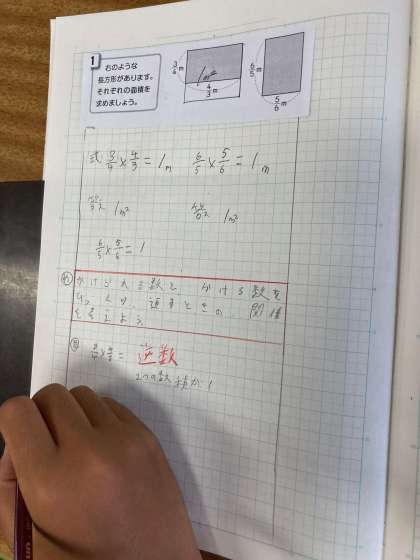 1
右のような
長方形があります。
それぞれの面積を
求めましょう。
3/4 m
1m²
4/3 m
6/5 m
5/6 m
式 3/4 × 4/3 = 1 m
6/5 × 5/6 = 1 m
答え 1m²
答え 1m²
6/5 × 5/6 = 1
かけられる数と かける数を
関係
を考えよう
逆数
2つの数 積が1